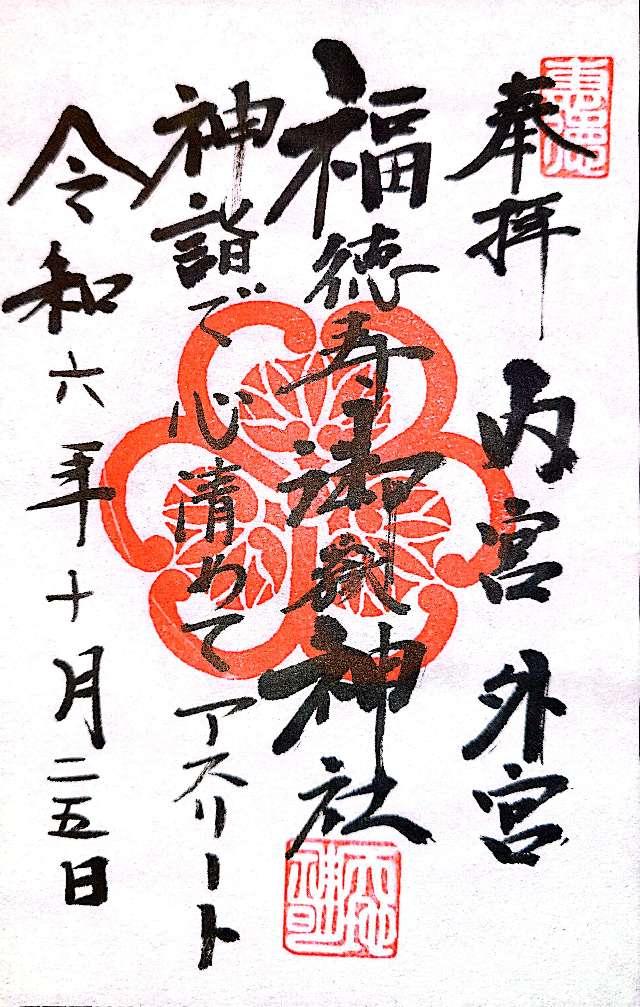 奉拝 内宮 外宮
福徳寿御嶽神社
神詣で心清めてアスリート
令和六年十月二五日